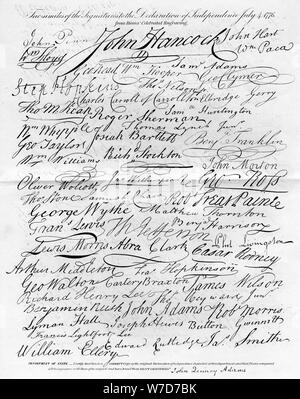 Facsimiles of the Signatures to the Declaration of Independence July 4. 1776.
from Binns's Celebrated Engraving.
John Penn John Hancock John Hart
Wm Floyd Wm Paca
Geo Read Wm Hooper Sam Adams Geo Clymer
Step Hopkins Tho Nelson jr
Charles Carroll of Carrollton Elbridge Gerry
Tho M:Kean Roger Sherman Sam Huntington
Wm Whipple Thomas Lynch Junr
Geo Taylor Josiah Bartlett Benj Franklin
Wm Williams Rich Stockton
John Morton
Oliver Wolcott Jno Witherspoon Geo Ross
Tho Stone Samuel Chase Rob Treat Paine
George Wythe Matthew Thornton
Fran Lewis Th Jefferson Benj Harrison
Lewis Morris Abra Clark Caesar Rodney
Phil Livingston
Arthur Middleton Fra Hopkinson
Geo Walton Carter Braxton James Wilson
Richard Henry Lee Tho Heyward Junr
Benjamin Rush John Adams Rob Morris
Lyman Hall Joseph Hewes Button Gwinnett
Francis Lightfoot Lee
William Ellery Edward Rutledge Ja Smith
John Quincy Adams
alamy
W7D7BK